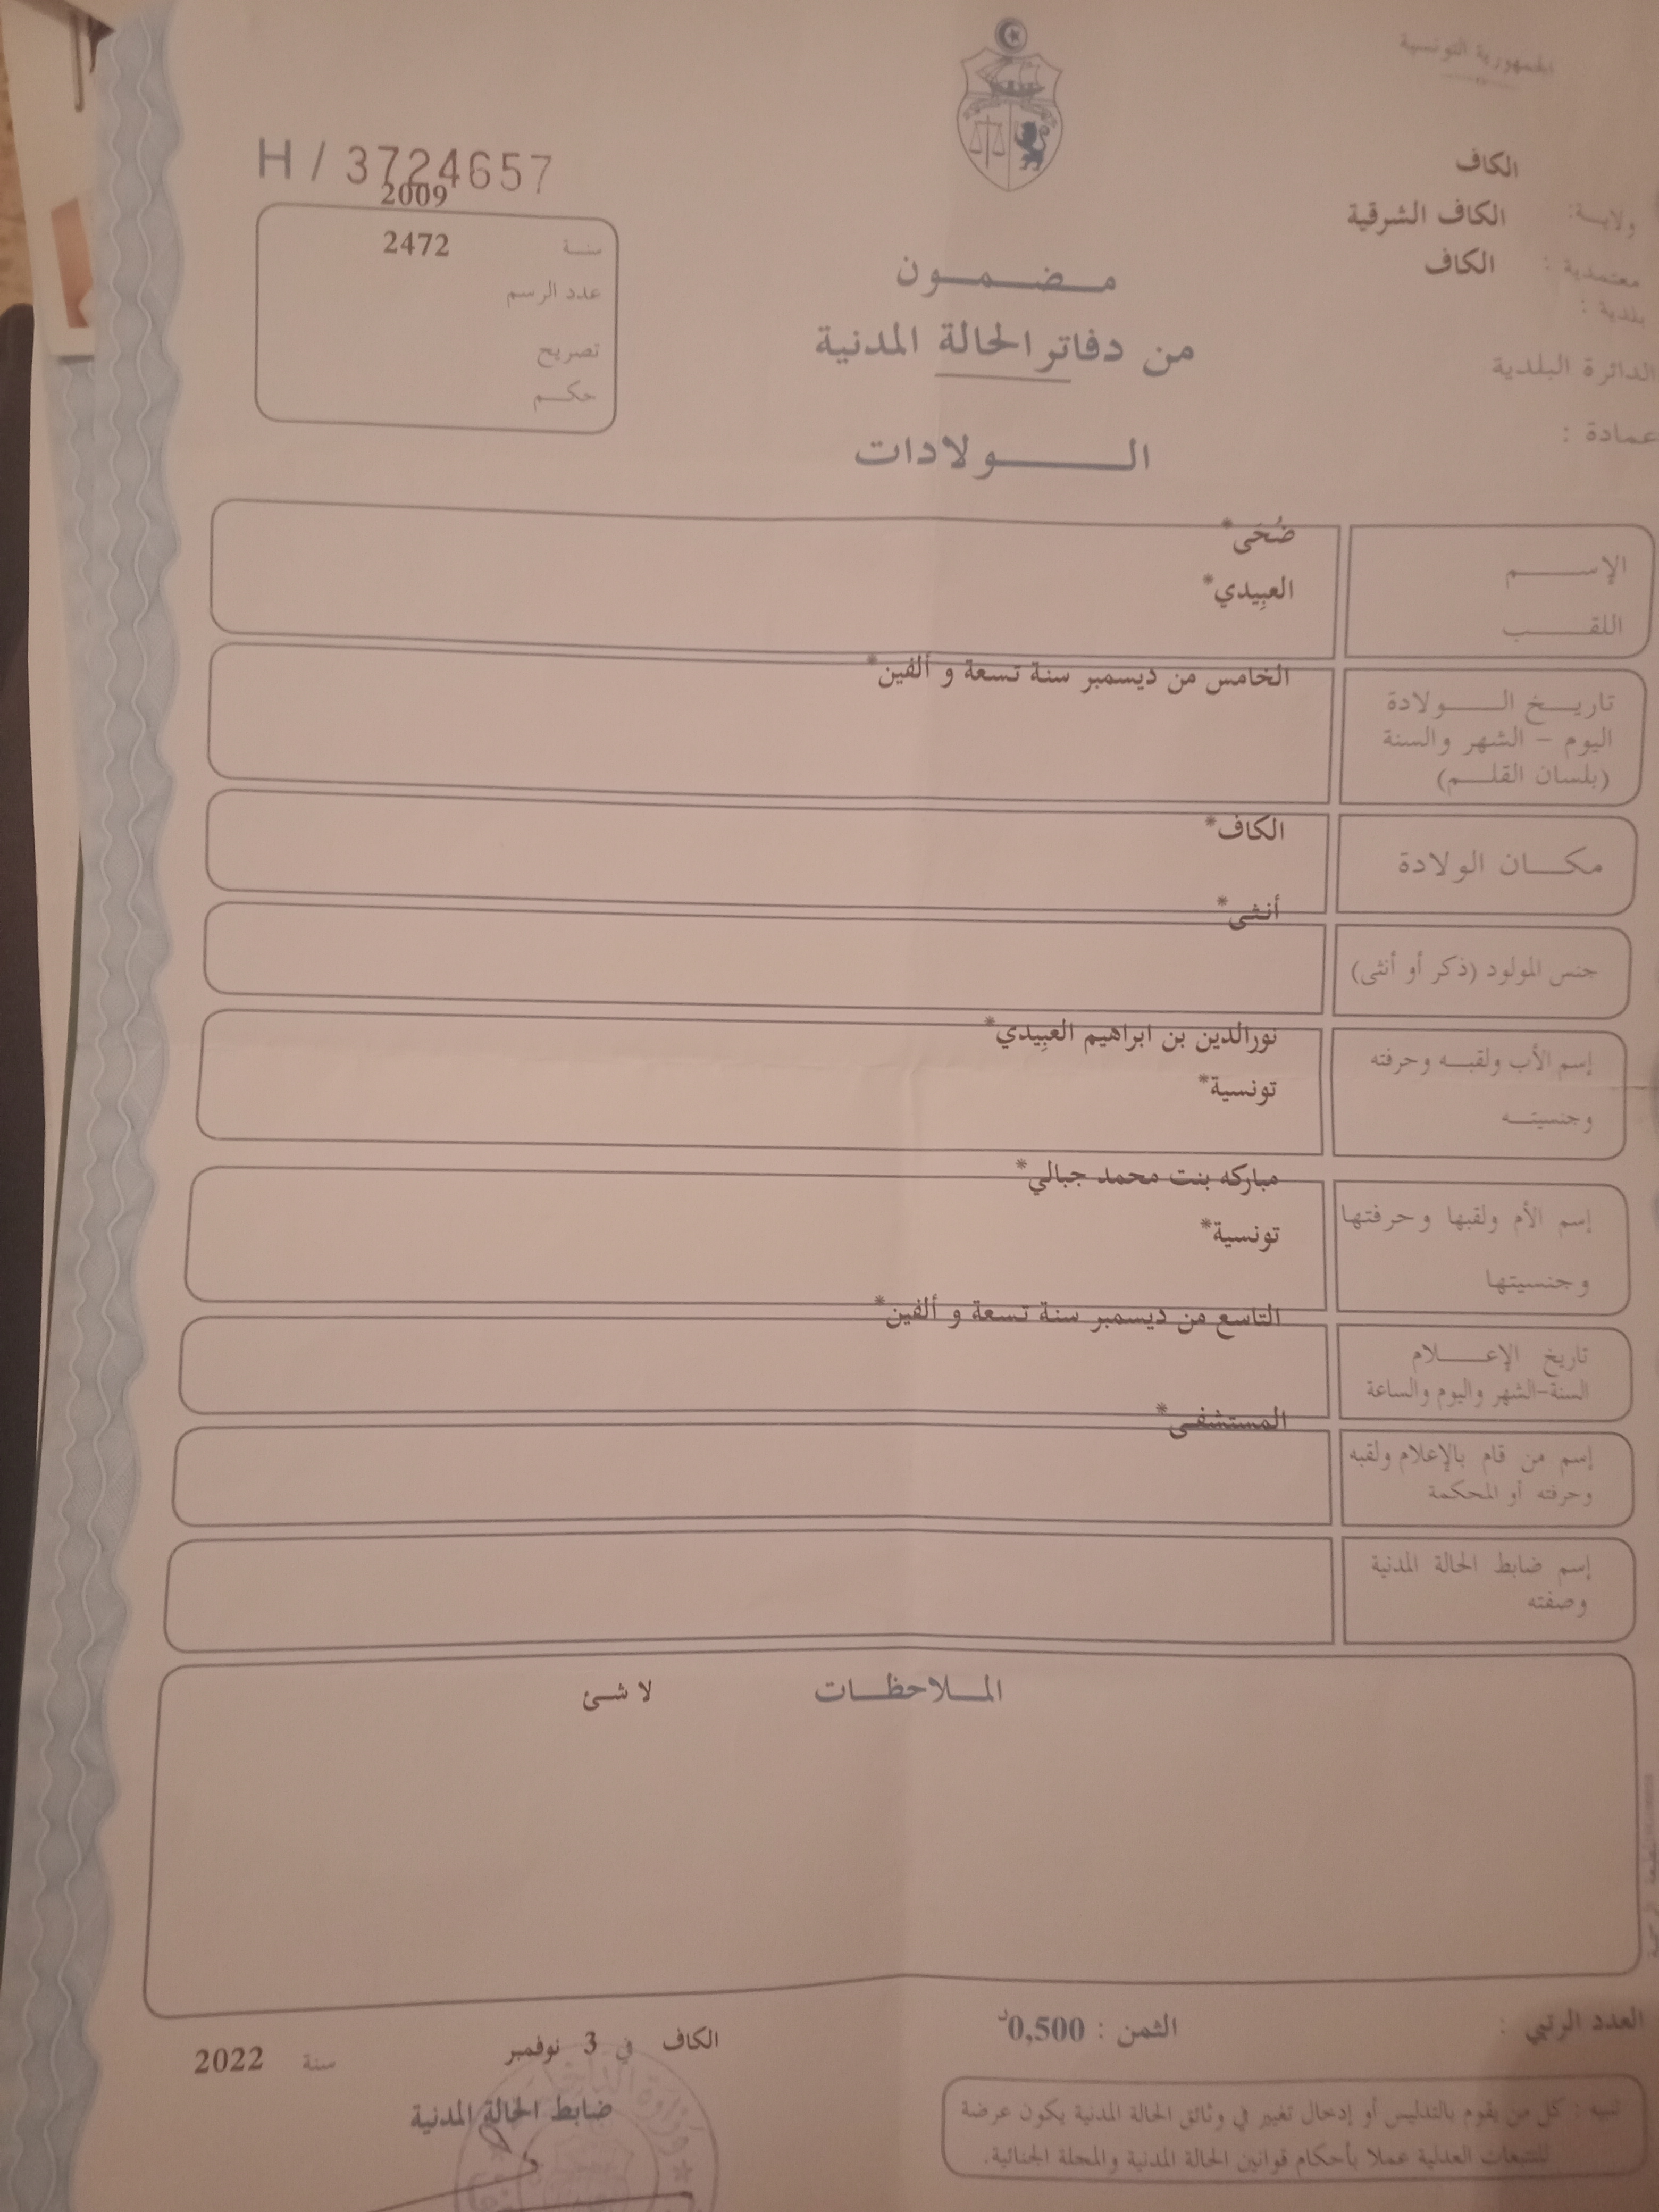 الجمهورية التونسية
H / 3724657
الكاف
ولايــة:
الكاف الشرقية
معتمدية :
الكاف
بلدية :
الدائرة البلدية
عمادة :
2009
سنــة
2472
عدد الرسم
تصريح
حكــم
مــضــمــون
من دفاتر الحالة المدنية
الــــولادات
الإســــم
ضُحَى*
اللقــــب
العبِيدي*
تاريــخ الــــولادة
اليوم – الشهر والسنة
(بلسان القلــم)
الخامس من ديسمبر سنة تسعة و ألفين*
مكــان الولادة
الكاف*
جنس المولود (ذكر أو أنثى)
أنثى*
إسم الأب ولقبــه وحرفته
وجنسيتــه
نورالدين بن ابراهيم العبِيدي*
تونسية*
إسم الأم ولقبها وحرفتها
وجنسيتها
مباركه بنت محمد جبالي*
تونسية*
تاريخ الإعـــلام
السنة-الشهر واليوم والساعة
التاسع من ديسمبر سنة تسعة و ألفين*
إسم من قام بالإعلام ولقبه
وحرفته أو المحكمة
المستشفى*
إسم ضابط الحالة المدنية
وصفته
المــلاحظــات
لا شئ
العدد الرتبي :
الثمن : 0,500د
الكاف في 3 نوفمبر سنة 2022
ضابط الحالة المدنية
تنبيه : كل من يقوم بالتدليس أو إدخال تغيير في وثائق الحالة المدنية يكون عرضة
للتتبعات العدلية عملا بأحكام قوانين الحالة المدنية والمجلة الجنائية.